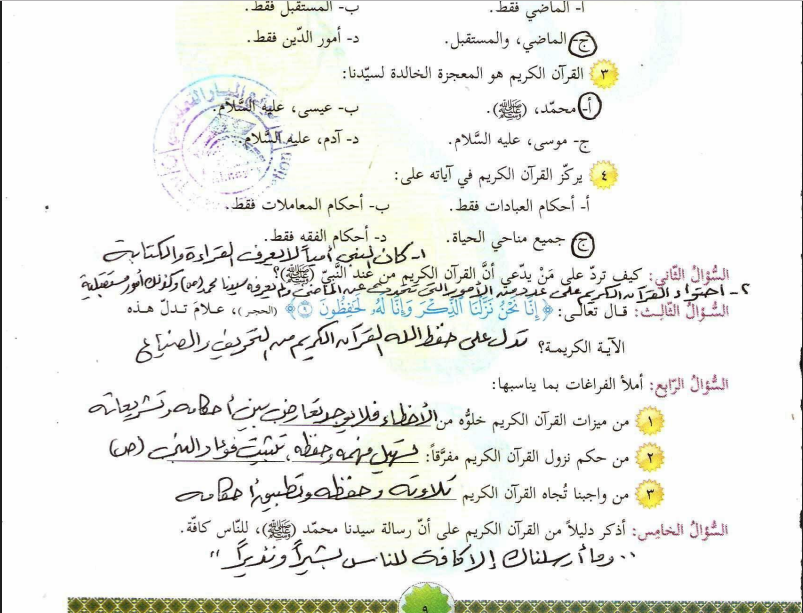 أ- الماضي فقط. ب- المستقبل فقط.
ج- الماضي، والمستقبل. د- أمور الدّين فقط.
٣ القرآن الكريم هو المعجزة الخالدة لسيّدنا:
أ- محمّد، (ﷺ). ب- عيسى، عليه السَّلام.
ج- موسى، عليه السَّلام. د- آدم، عليه السَّلام.
٤ يركّز القرآن الكريم في آياته على:
أ- أحكام العبادات فقط. ب- أحكام المعاملات فقط.
ج- جميع مناحي الحياة. د- أحكام الفقه فقط.
١- كان النبي أمياً لا يعرف القراءة والكتابة
السُّؤالُ الثّاني: كيف تردّ على مَنْ يدّعي أنَّ القرآن الكريم من عند النَّبيّ (ﷺ)؟
٢- احتواء القرآن الكريم على عدد من الأمور التي تتحدث عن الماضي ولم يعرفه سيدنا محمد (ص) وكذلك أمور مستقبلية
السُّؤالُ الثّالث: قال تعالى: ﴿إِنَّا نَحْنُ نَزَّلْنَا الذِّكْرَ وَإِنَّا لَهُ لَحَٰفِظُونَ ٩﴾ (الحجر)، علامَ تدلّ هذه
الآية الكريمة؟ تدل على حفظ الله القرآن الكريم من التحريف والضياع
السُّؤالُ الرّابع: أملأ الفراغات بما يناسبها:
١ من ميزات القرآن الكريم خلوُّه من الأخطاء فلا يوجد تعارض بين أحكامه وتشريعاته
٢ من حكم نزول القرآن الكريم مفرَّقاً: تسهيل فهمه وحفظه، تثبيت فؤاد النبي (ص)
٣ من واجبنا تُجاه القرآن الكريم تلاوته وحفظه وتطبيق أحكامه
السُّؤالُ الخامس: أذكر دليلاً من القرآن الكريم على أنّ رسالة سيدنا محمّد (ﷺ)، للنّاس كافّة.
"وما أرسلناك إلا كافة للناس بشيراً ونذيراً"
٩